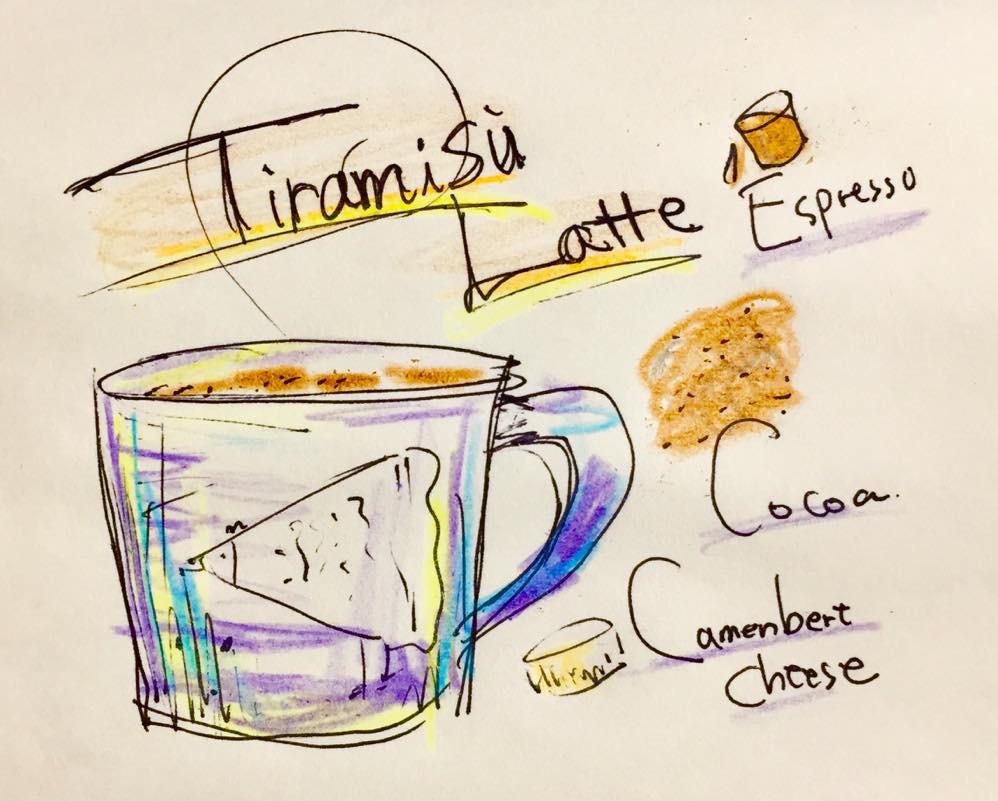 Tiramisù
Latte
Espresso
Cocoa.
Camenbert
cheese